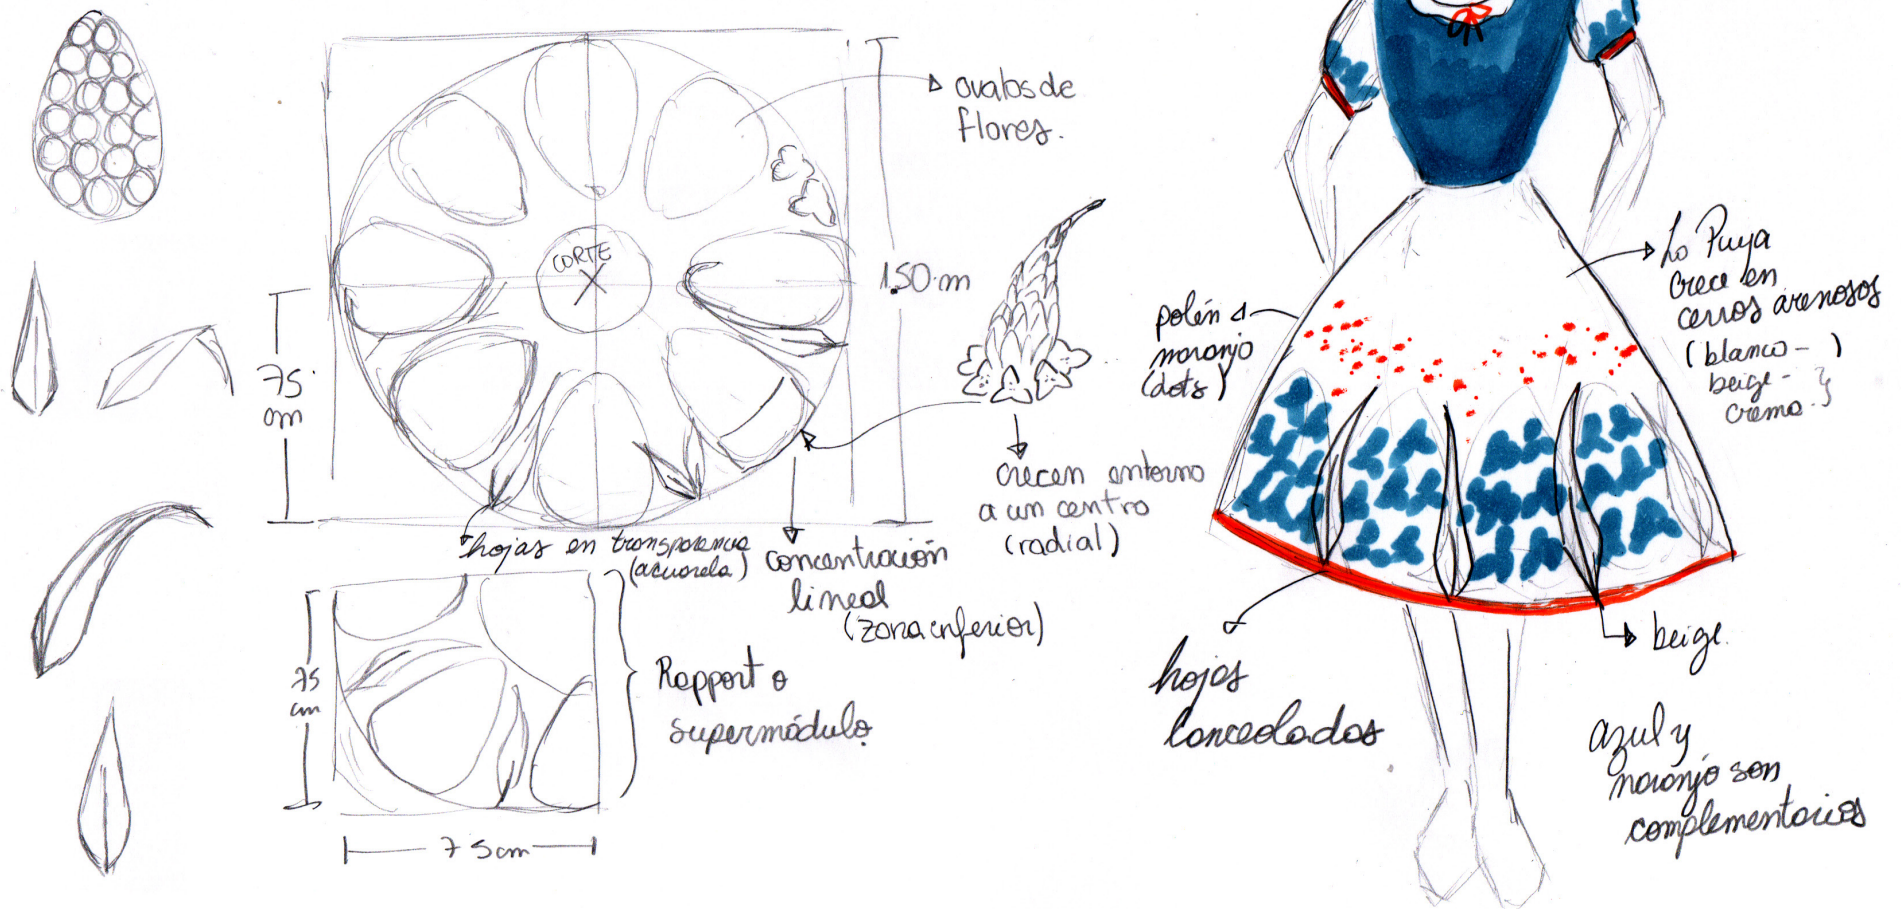 ovalos de
flores.
CORTE
X
1.50.m
75.
cm
crecen entorno
a un centro
(radial)
hojas en transparencia
(acuarela)
concentración
lineal
(zona inferior)
75
cm
Rapport o
supermódulo.
75cm
La Puya
crece en
cerros arenosos
(blanco - )
beige -
crema.}
polén
naranjo
(dots)
hojas
lanceoladas
beige.
azul y
naranjo son
complementarios